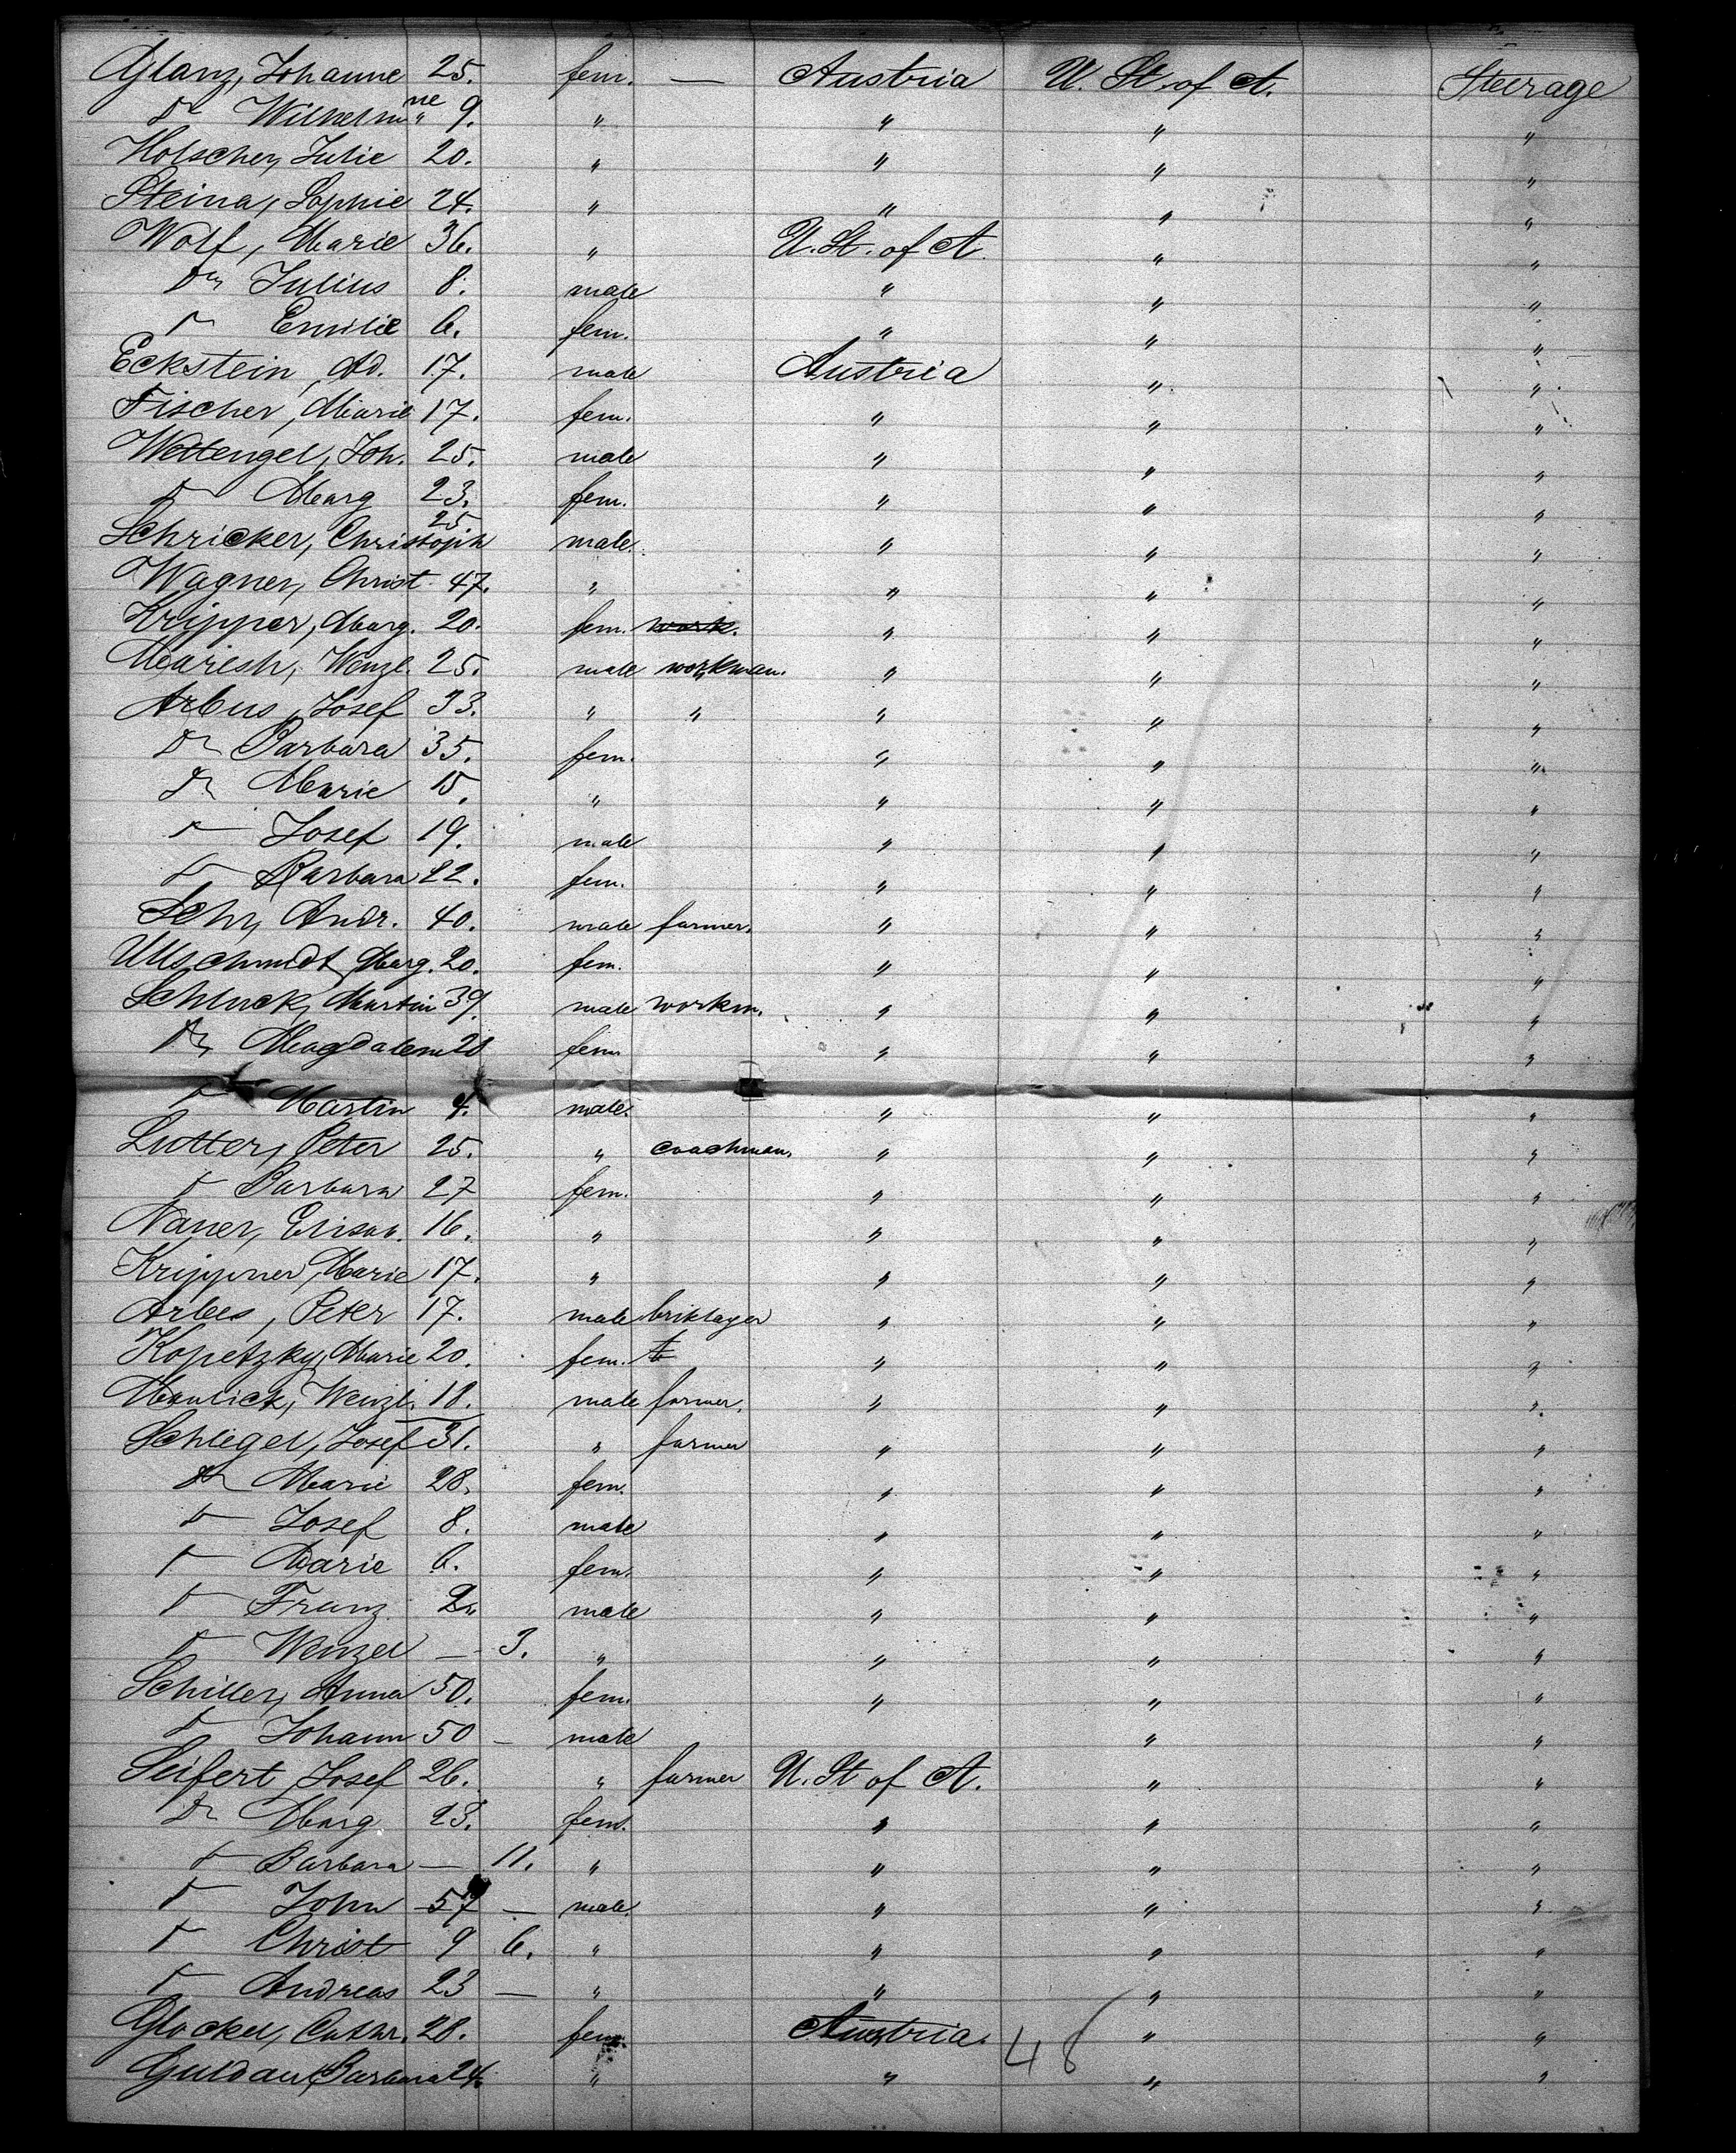 Glanz, Johanne 25. fem. — Austria U. St. of A. Steerage
do Wilhelmne 9. " " " "
Holscher, Julie 20. " " " "
Steina, Sophie 24. " " " "
Wolf, Marie 36. " U. St. of A. " "
do Julius 8. male " " "
do Emilie 6. fem. " " "
Eckstein, Ad. 17. male Austria " "
Fischer, Marie 17. fem. " " "
Wettengel, Joh. 25. male " " "
do Marg 23. fem. " " "
Schricker, Christoph 25. male " " "
Wagner, Christ. 47. " " " "
Kripper, Marg. 20. fem. work. " " "
Maresh, Wenzl. 25. male workman. " " "
Arbus, Josef 33. " " " " "
do Barbara 35. fem. " " "
do Marie 15. " " " "
do Josef 19. male " " "
do Barbara 22. fem. " " "
Sehr, Andr. 40. male farmer. " " "
Ullschmidt, Marg. 20. fem. " " "
Schluck, Martin 39. male workm. " " "
do Magdalene 28 fem " " "
do Martin 4. male. " " "
Lutter, Peter 25. " coachman. " " "
do Barbara 27 fem. " " "
Naner, Elisab. 16. " " " "
Krippner, Marie 17. " " " "
Arbes, Peter 17. male briklayer " " "
Kopetzky, Marie 20. fem. " " "
Wenzl. 18. male farmer. " " "
Schlegel, Josef 31. " farmer " " "
do Marie 28. fem. " " "
do Josef 8. male " " "
do Marie 6. fem. " " "
do Franz 2. male " " "
do Wenzel — 3. " " " "
Schiller, Anna 50. fem. " " "
do Johann 50 — male " "
Seifert, Josef 26. " farmer U. St of A. " "
do Marg 23. fem. " " "
do Barbara — 11. " " " "
do John 57 — male. " " "
do Christ 9 6. " " " "
do Andreas 23 — " " " "
Glockel, Cathr. 28. fem. Austria. " "
Guldan, Barbara 24. " " " "
48